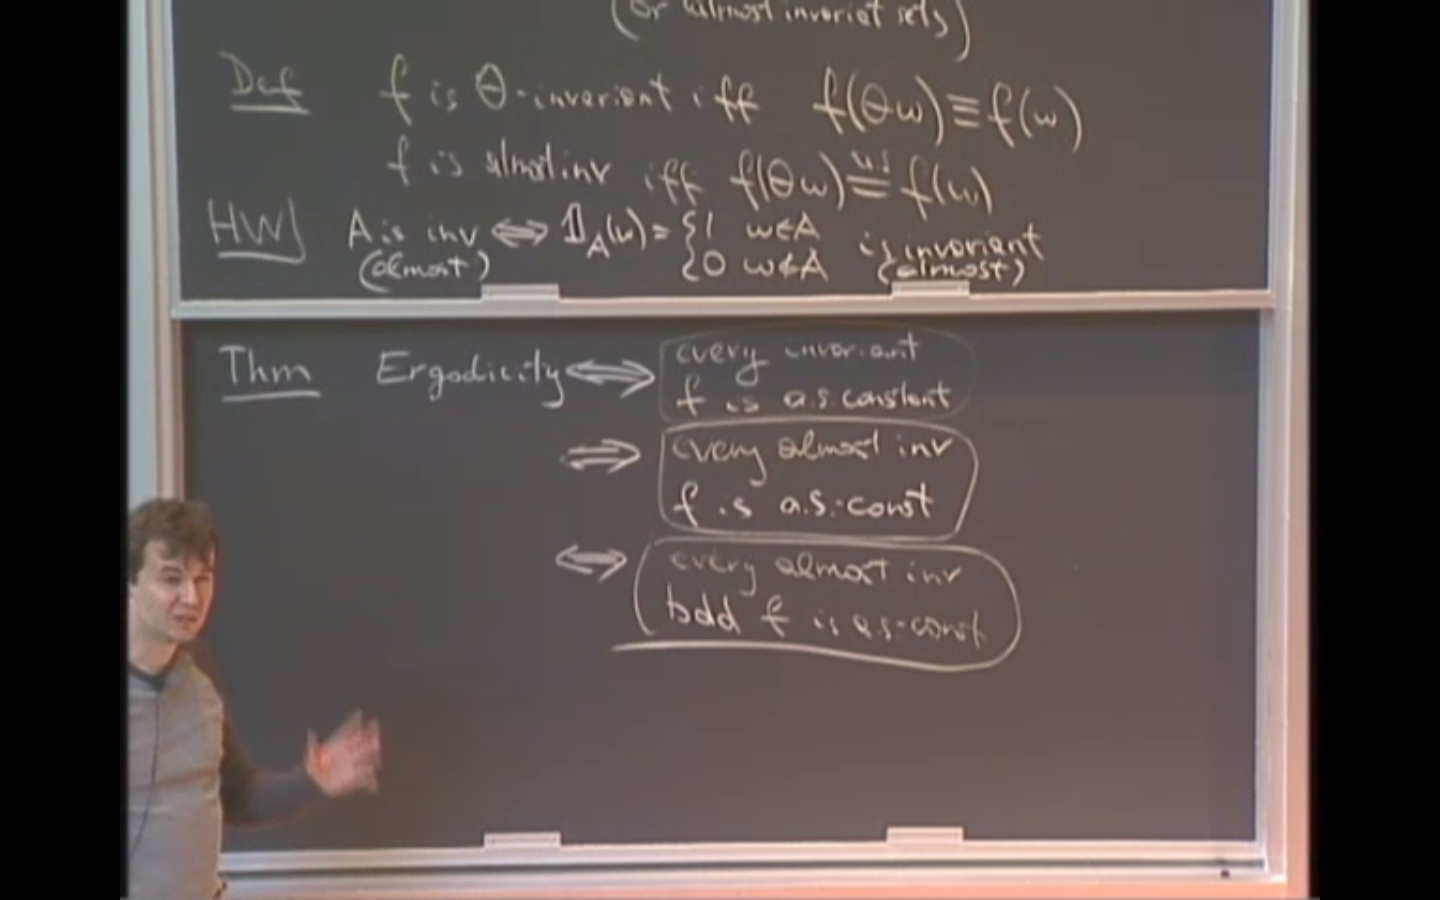 (or almost invariant sets)
Def f is θ-invariant iff f(θω)≡f(ω)
f is almost inv iff f(θω) a.s = f(ω)
HW A is inv ⇔ 𝟙_A(ω) = { 1 ω∈A is invariant
(almost) { 0 ω∉A (almost)
Thm Ergodicity ⇔ every invariant
f is a.s. constant
⇒ every almost inv
f is a.s.-const
⇔ every almost inv
bdd f is a.s-const